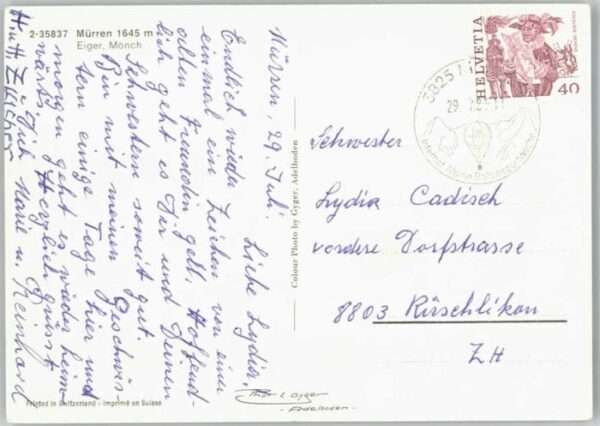 2-35837 Mürren 1645 m
Eiger, Mönch
Mürren, 29. Juli
Liebe Lydia,
Endlich wieder ein Zeichen von einer
einmal
alten Freundin gell. Hoffend-
lich geht es Dir und Deinen
Schwestern soweit gut.
Bin mit meinen Geschwis-
tern einige Tage hier und
morgen geht es wieder heim-
wärts. Herzlich grüsst
Dich Marie u. Reinhard
H. u. H. Zürcher
Printed in Switzerland - Imprimé en Suisse
Colour Photo by Gyger, Adelboden
HELVETIA
40
3825
29.7.
Schwester
Lydia Cadisch
vordere Dorfstrasse
8803 Rüschlikon
ZH
Gyger
Adelboden